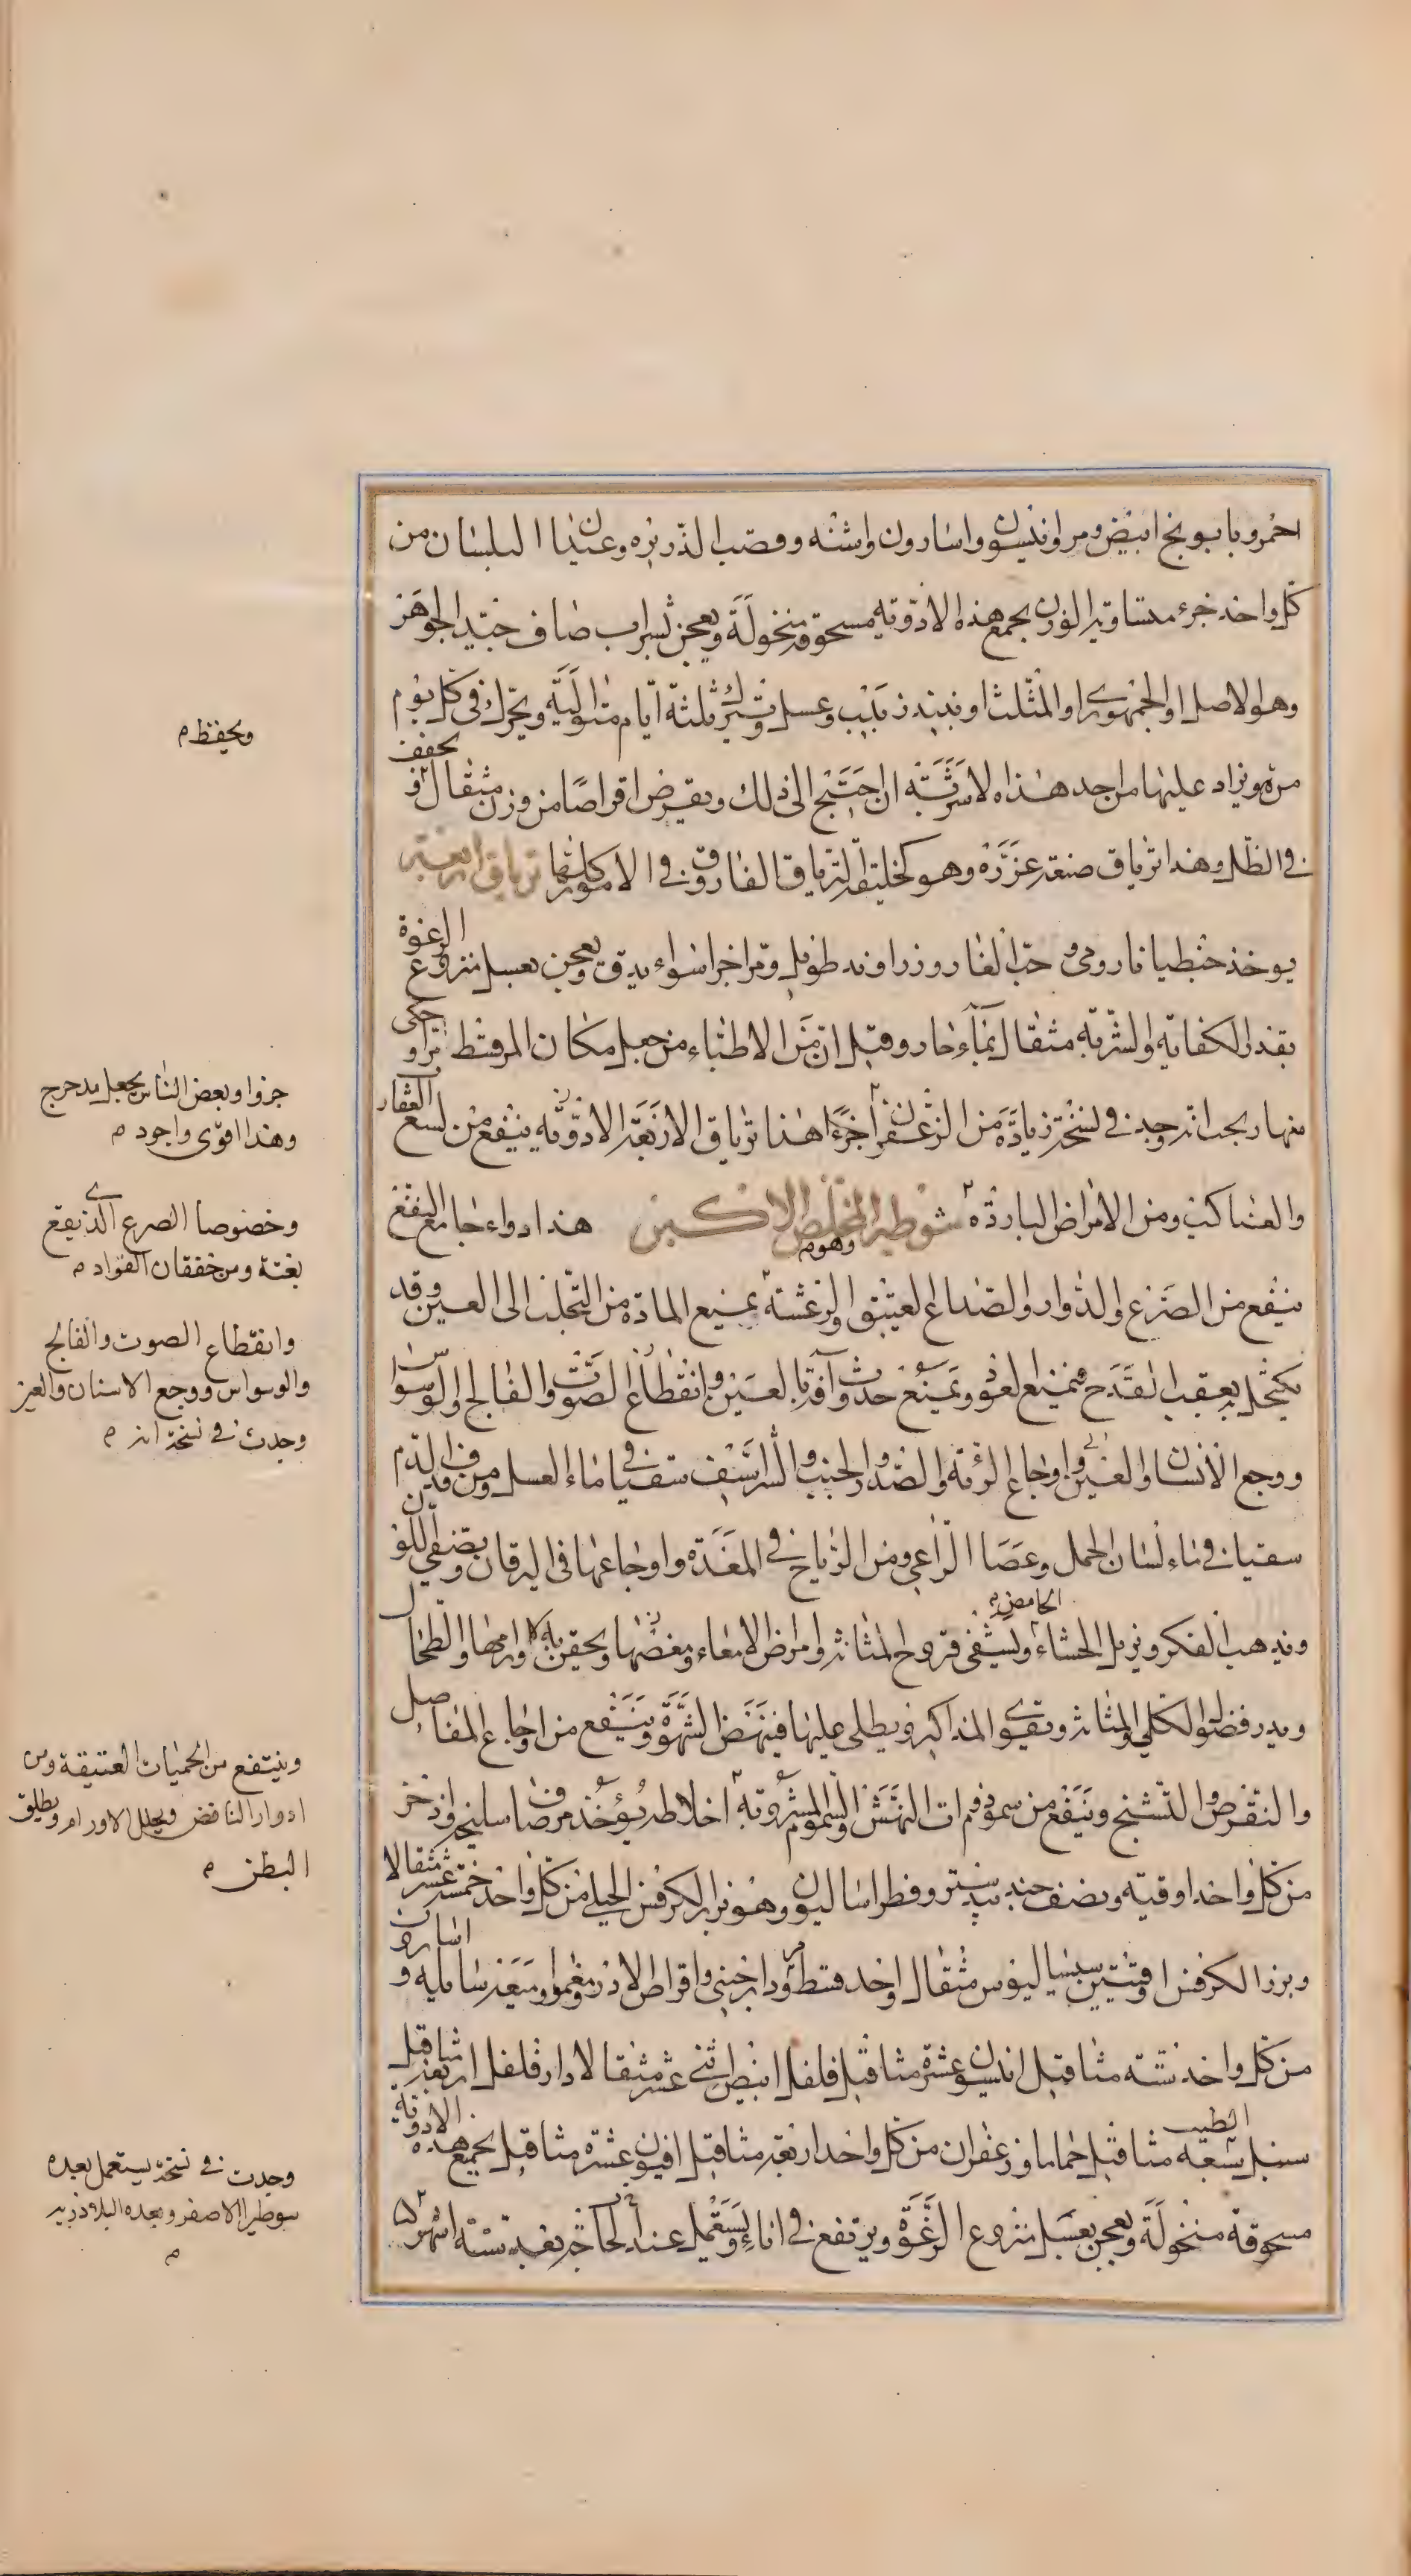 احمر وبابونج ابيض ومر وانيسون واسارون واشنه وقصب الذريره وعيدان البلسان من
كل واحد جزء متساوية الوزن يجمع هذه الادوية مسحوقة منخولة ويعجن بشراب صاف جيد الجوهر
وهو الاصل او الجمهوري او المثلث او نبيذ زبيب وعسل وتترك ثلثة ايام متوالية ويحرك في كل يوم
مرة ويزاد عليها من احد هذه الاشربة ان احتيج الى ذلك ويقرص اقراصا من وزن مثقال و يجفف
في الظل وهذا ترياق صنعته عزرة وهو كخليفة لترياق الفاروق في الامور كلها ترياق اربعة
يوخذ جنطيانا رومي وحب الغار وزراوند طويل ومر اجزا سواء يدق ويعجن بعسل منزوع الرغوة
بقدر الكفاية والشربة مثقال بماء حار وقيل ان من الاطباء من جعل مكان المر قسط مرا و حكى
منهاربخت انه وجد في نسخة زيادة من الزعفران جزءا هذا ترياق الاربعة الادوية ينفع من لسع العقارب
والعناكب ومن الامراض الباردة شوطيرا المخلص الاكبر هذا دواء جامع النفع
وهو
ينفع من الصرع والدوار والصداع العتيق والرعشة يمنع المادة من التحلب الى العين وقد
يكتحل به بعقب القدح فيمنع العود ويمنع حدوث آفة بالعين وانقطاع الصوت والفالج والوسواس
ووجع الاسنان والعين واوجاع الرئة والصدر والجنب والشراسيف سقيا في ماء العسل ومن قذف الدم
سقيا في ماء لسان الحمل وعصا الراعي ومن الرياح في المعدة واوجاعها في اليرقان ويصفي اللون
ويذهب الفكر ويزيل الجشاء الحامض ويشفي قروح المثانة وامراض الامعاء ومغصها ويحقن به لاورامها والطحال
ويدر فضول الكلي والمثانة ويقوي المذاكير ويطلى عليها فينهض الشهوة وينفع من اوجاع المفاصل
والنقرس والتشنج وينفع من سموم ذوات النهش والسموم المشروبة اخلاطه يؤخذ مر صاف سليخة واذخر
من كل واحد اوقية ونصف جند بيدستر وفطراساليون وهو بزر الكرفس الجبلي من كل واحد خمسة عشر مثقالا
وبزر الكرفس اوقيتين سيساليوس مثقال واحد قسط مر ودارصيني واقراص الاندروخورون وميعة سايلة و اسارون
من كل واحد ستة مثاقيل انيسون عشرة مثاقيل فلفل ابيض اثنى عشر مثقالا دارفلفل اربعة مثاقيل
سنبل الطيب تسعة مثاقيل حماما وزعفران من كل واحد اربعة مثاقيل افيون عشرة مثاقيل يجمع هذه الادوية
مسحوقة منخولة ويعجن بعسل منزوع الرغوة ويرفع في اناء ويستعمل عند الحاجة بعد ستة اشهر
ويحفظ م
جزوا وبعض الناس يجعل مدحرج
وهذا اقوى واجود م
وخصوصا الصرع الذي يقع
بغتة ومن خفقان الفواد م
وانقطاع الصوت والفالج
والوسواس ووجع الاسنان والعين
وجدت في نسخة م
وينتفع من الحميات العتيقة ومن
ادوار النافض ويحلل الاورام ويطلق
البطن م
وجدت في نسخة يستعمل بعده
سوطيرا الاصغر وبعده البلاذريه
م